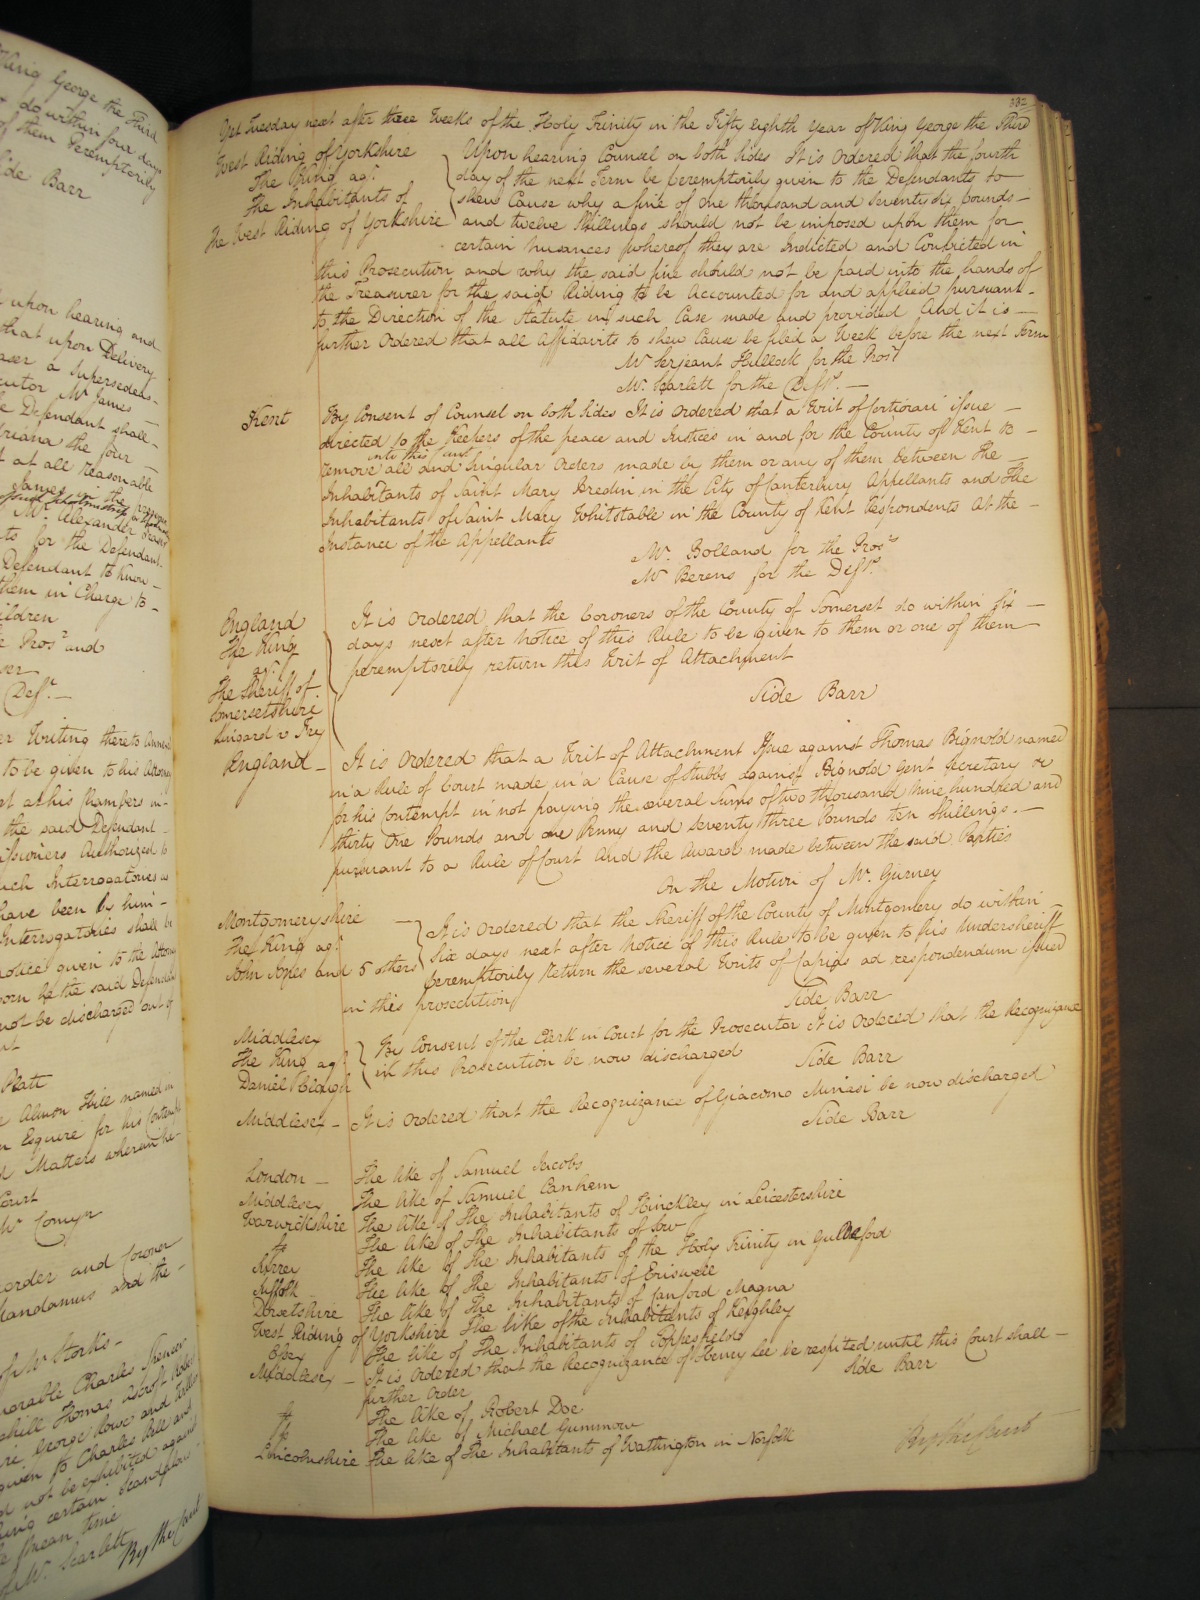 King George the Third
do within four days
of them peremptorily
Side Barr
upon hearing and
that upon Delivery
a Supersedeas
Mr James
Defendant shall
the four
at all reasonable
Mr Alexander Fraser
for the Defendant
Defendant to know
them in Charge to
Pros.r and
Def.t
Writing thereto annexed
to be given to his Attorney
the said Defendant
Authorized to
such Interrogatories as
have been by him
Interrogatories shall be
notice given to the
the said Defendant
not be discharged out of
Platt
named in
Esquire for his Contempt
Matters wherein he
Court
Mr Comyn
order and Coroner
Mandamus and the
Mr Storks
Charles Spencer
Thomas
George Rowe and
given to Charles Bell and
not be exhibited against
certain Scandalous
mean time
of Mr Scarlett
By the Court
332
Yet Tuesday next after three Weeks of the Holy Trinity in the Fifty eighth Year of King George the Third
West Riding of Yorkshire
The King ag.t
The Inhabitants of
The West Riding of Yorkshire
Upon hearing Counsel on both sides It is ordered that the fourth
day of the next Term be peremptorily given to the Defendants to
shew Cause why a fine of One thousand and seventy six pounds
and twelve Shillings should not be imposed upon them for
certain nusances whereof they are Indicted and Convicted in
this Prosecution and why the said fine should not be paid into the hands of
the Treasurer for the said Riding to be accounted for and applied pursuant
to the Direction of the Statute in such Case made and provided And it is
further Ordered that all Affidavits to shew Cause be filed a Week before the next Term
Mr Serjeant Hullock for the Pros.r
Mr Scarlett for the Def.ts
Kent
By Consent of Counsel on both sides It is ordered that a Writ of Certiorari issue
directed to the Keepers of the peace and Justices in and for the County of Kent to
into this Court
remove all and Singular Orders made by them or any of them between The
Inhabitants of Saint Mary Bredin in the City of Canterbury Appellants and The
Inhabitants of Saint Mary Whitstable in the County of Kent Respondents At the
Instance of the Appellants
Mr. Bolland for the Pros.rs
Mr Berens for the Def.ts
England
The King
ag.t
The Sheriff of
Somersetshire
Lingard v Frey
It is Ordered that the Coroners of the County of Somerset do within six
days next after Notice of this Rule to be given to them or one of them
peremptorily return this Writ of Attachment
Side Barr
England
It is Ordered that a Writ of Attachment Issue against Thomas Bignold named
in a Rule of Court made in a Cause of Stubbs against Bignold Gent Secretary &c
for his Contempt in not paying the several Sums of two thousand nine hundred and
thirty One Pounds and one Penny and Seventy three Pounds ten Shillings
pursuant to a Rule of Court and the Award made between the said Parties
On the Motion of Mr. Gurney
Montgomeryshire
The King ag.t
John and 5 others
It is Ordered that the Sheriff of the County of Montgomery do within
Six days next after Notice of this Rule to be given to his Undersheriff
peremptorily Return the several Writs of Capias ad respondendum issued
in this prosecution
Side Barr
Middlesex
The King ag.t
Daniel Cloigh
By Consent of the Clerk in Court for the Prosecutor It is Ordered that the Recognizance
in this Prosecution be now discharged
Side Barr
Middlesex
It is Ordered that the Recognizance of Giacomo Minasi be now discharged
Side Barr
London The like of Samuel Jacobs
Middlesex The like of Samuel Canhem
Warwickshire The like of The Inhabitants of Hinckley in Leicestershire
The like of The Inhabitants of Sow
Surrey The like of The Inhabitants of the Holy Trinity in Guildford
Suffolk The like of The Inhabitants of Eriswell
Dorsetshire The like of The Inhabitants of Canford Magna
West Riding of Yorkshire The like of the Inhabitants of Keighley
Essex The like of The Inhabitants of Toppesfield
Middlesex It is Ordered that the Recognizance of Henry Lee be respited until this Court shall
further Order
Side Barr
The like of Robert Doe
The like of Michael Gummow
Lincolnshire The like of The Inhabitants of Wathington in Norfolk
By the Court